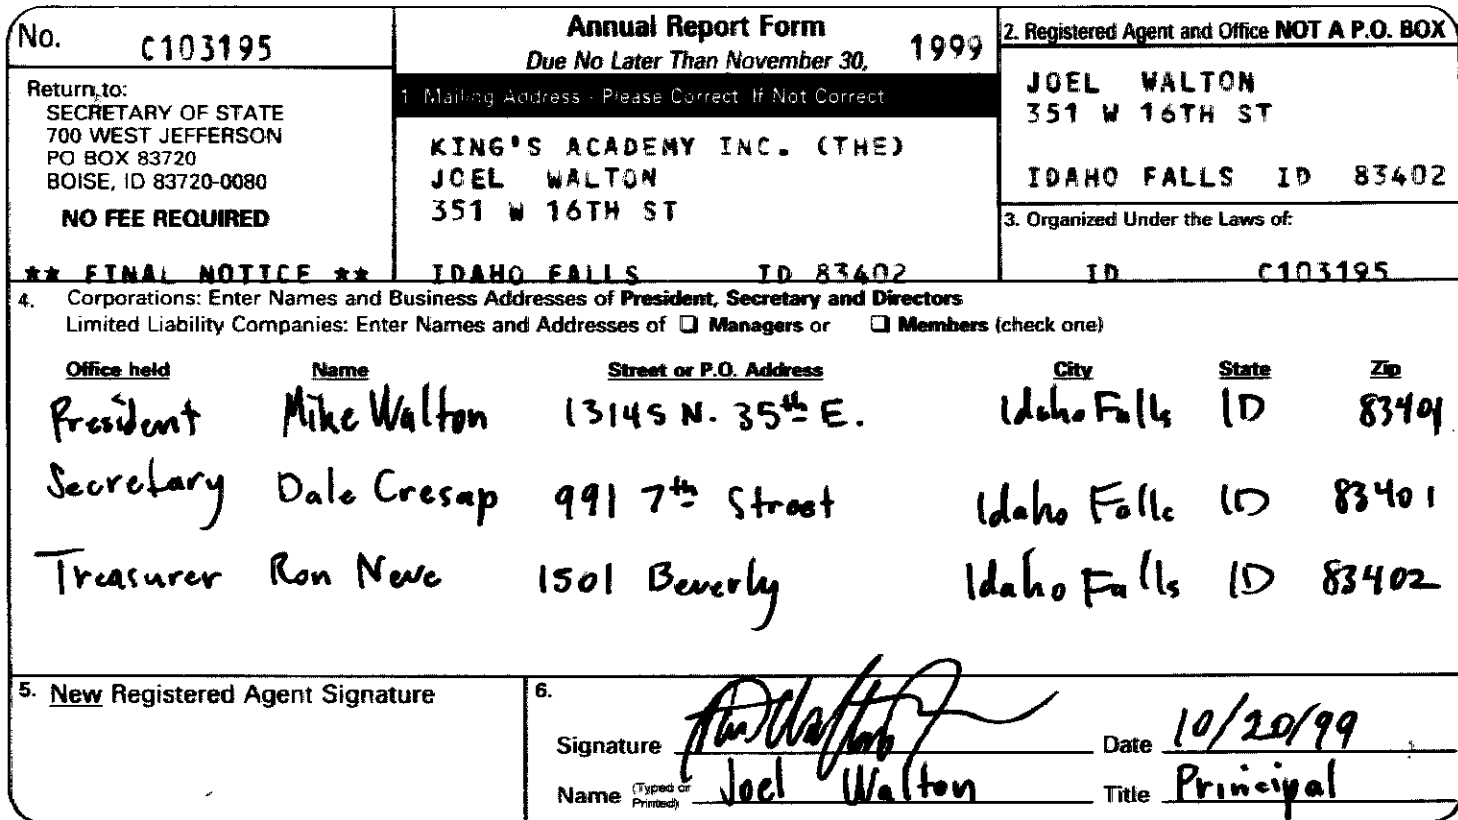 No. C103195
Return to:
SECRETARY OF STATE
700 WEST JEFFERSON
PO BOX 83720
BOISE, ID 83720-0080
NO FEE REQUIRED
** FINAL NOTICE **
Annual Report Form
Due No Later Than November 30, 1999
1. Mailing Address - Please Correct If Not Correct
KING'S ACADEMY INC. (THE)
JOEL WALTON
351 W 16TH ST
IDAHO FALLS ID 83402
2. Registered Agent and Office NOT A P.O. BOX
JOEL WALTON
351 W 16TH ST
IDAHO FALLS ID 83402
3. Organized Under the Laws of:
ID C103195
4. Corporations: Enter Names and Business Addresses of President, Secretary and Directors
Limited Liability Companies: Enter Names and Addresses of ❑ Managers or ❑ Members (check one)
Office held Name Street or P.O. Address City State Zip
President Mike Walton 13145 N. 35th E. Idaho Falls ID 83401
Secretary Dale Cresap 991 7th Street Idaho Falls ID 83401
Treasurer Ron Neve 1501 Beverly Idaho Falls ID 83402
5. New Registered Agent Signature
6.
Signature Date 10/20/99
Name (Typed or Printed) Joel Walton Title Principal